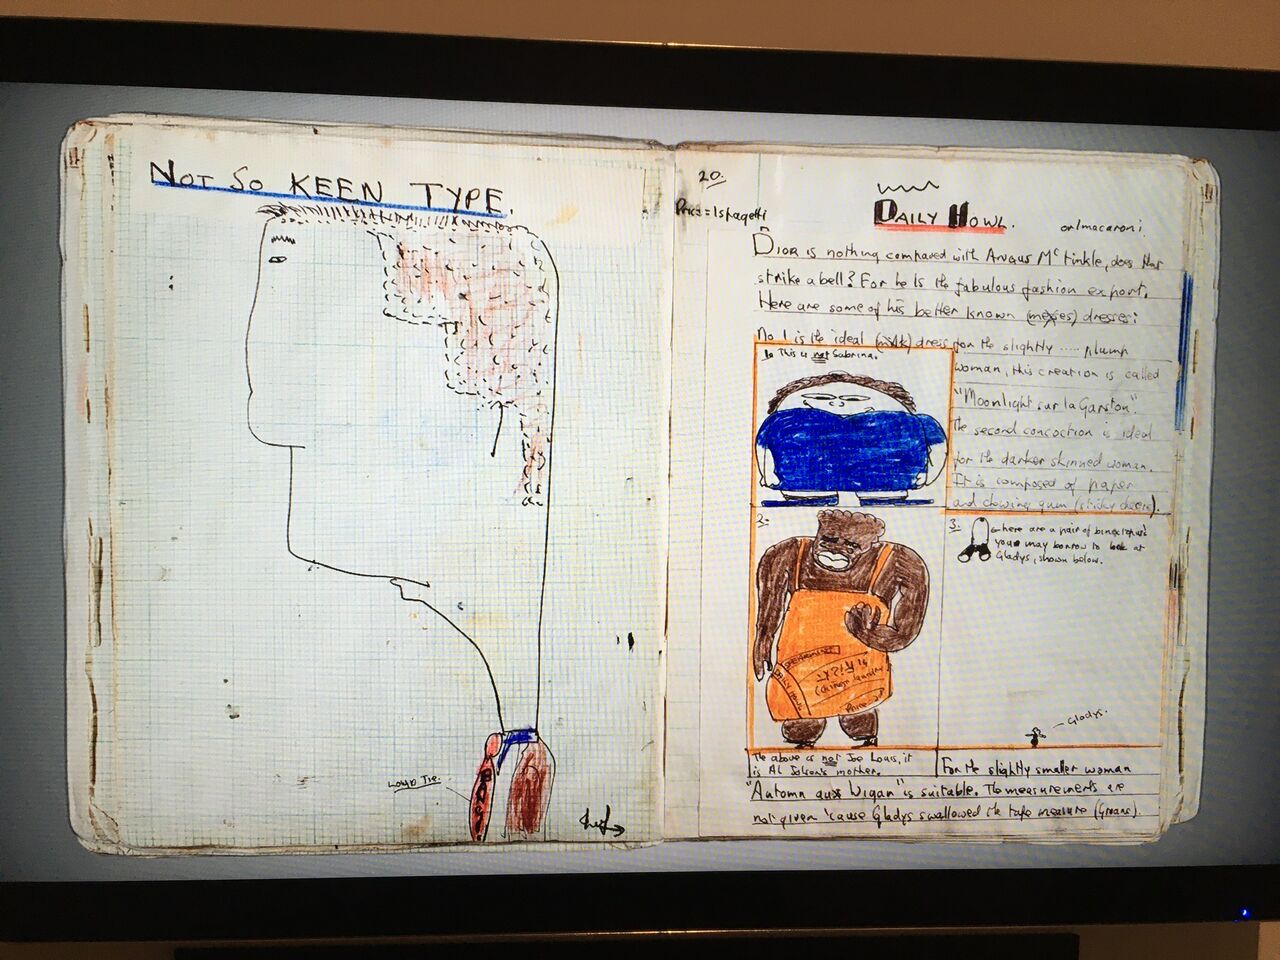 NOT SO KEEN TYPE.
LOUD TIE.
20.
Price = 1 spagetti
DAILY HOWL.
or 1 macaroni.
Dior is nothing compared with Angus McTinkle, does that
strike a bell? For he is the fabulous fashion expert.
Here are some of his better known (messes) dresses:
No 1 is the ideal (milk) dress for the slightly ..... plump
woman, this creation is called
"Moonlight sur la Garston".
The second concoction is ideal
for the darker skinned woman.
It is composed of paper
and chewing gum (sticky dress).
1. This is not Sabrina.
2.
DAILY HOWL
(chinese laundry
Price
3.
← here are a pair of binoculars
you may borrow to look at
Gladys, shown below.
Gladys.
The above is not Joe Louis, it
is Al Jolson's mother.
For the slightly smaller woman
"Automn aux Wigan" is suitable. The measurements are
not given 'cause Gladys swallowed the tape measure (Groans).